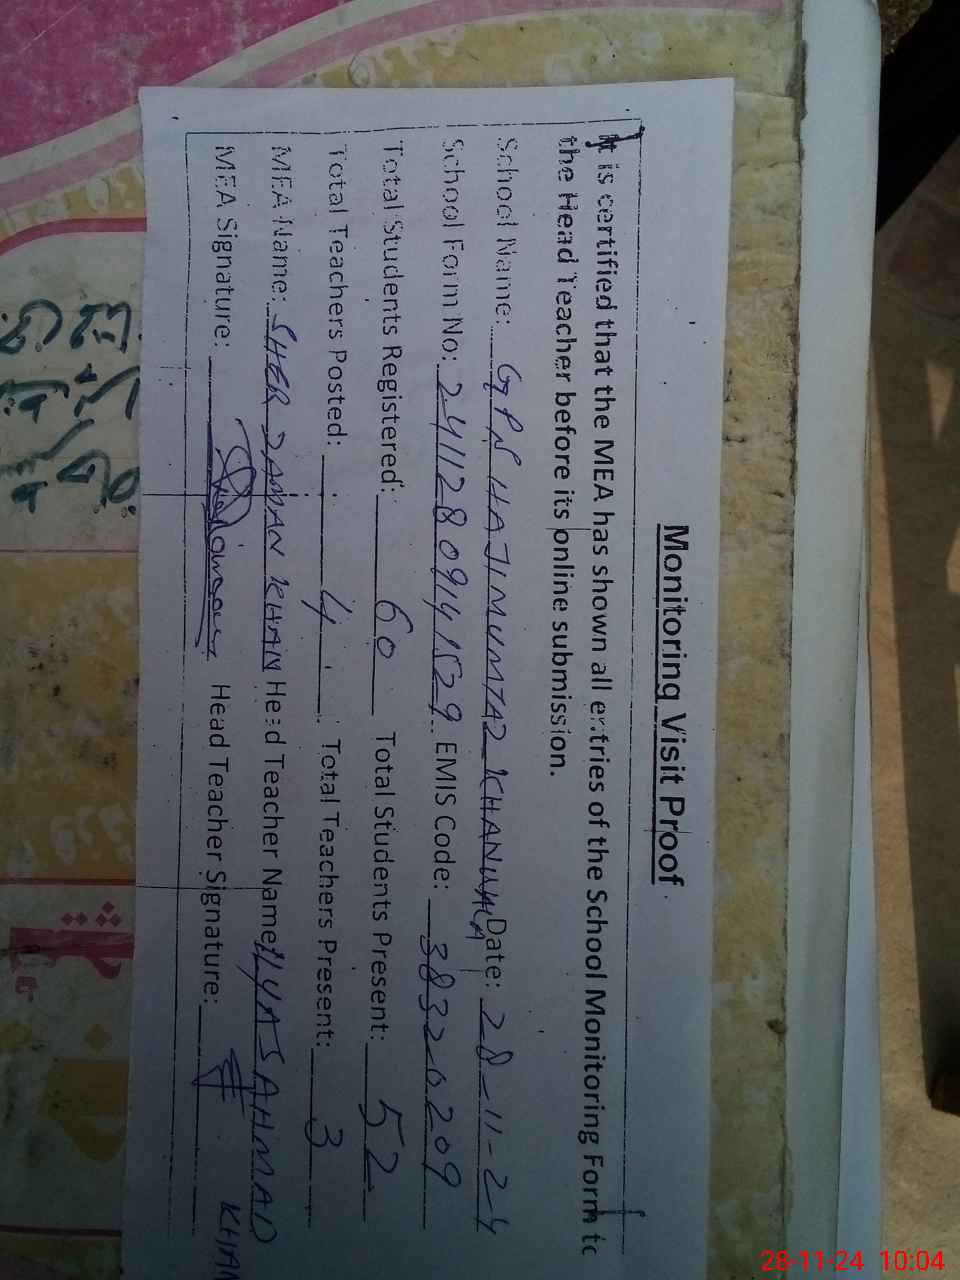 Monitoring Visit Proof
It is certified that the MEA has shown all entries of the School Monitoring Form to
the Head Teacher before its online submission.
School Name: GPS HAJI MUMTAZ KHANWALA Date: 28-11-24
School Form No: 24112809141529 EMIS Code: 38320209
Total Students Registered: 60 Total Students Present: 52
Total Teachers Posted: 4 Total Teachers Present: 3
MEA Name: SHER ZAMAN KHAN Head Teacher Name: ILYAS AHMAD KHAN
MEA Signature: Head Teacher Signature:
28-11-24 10:04